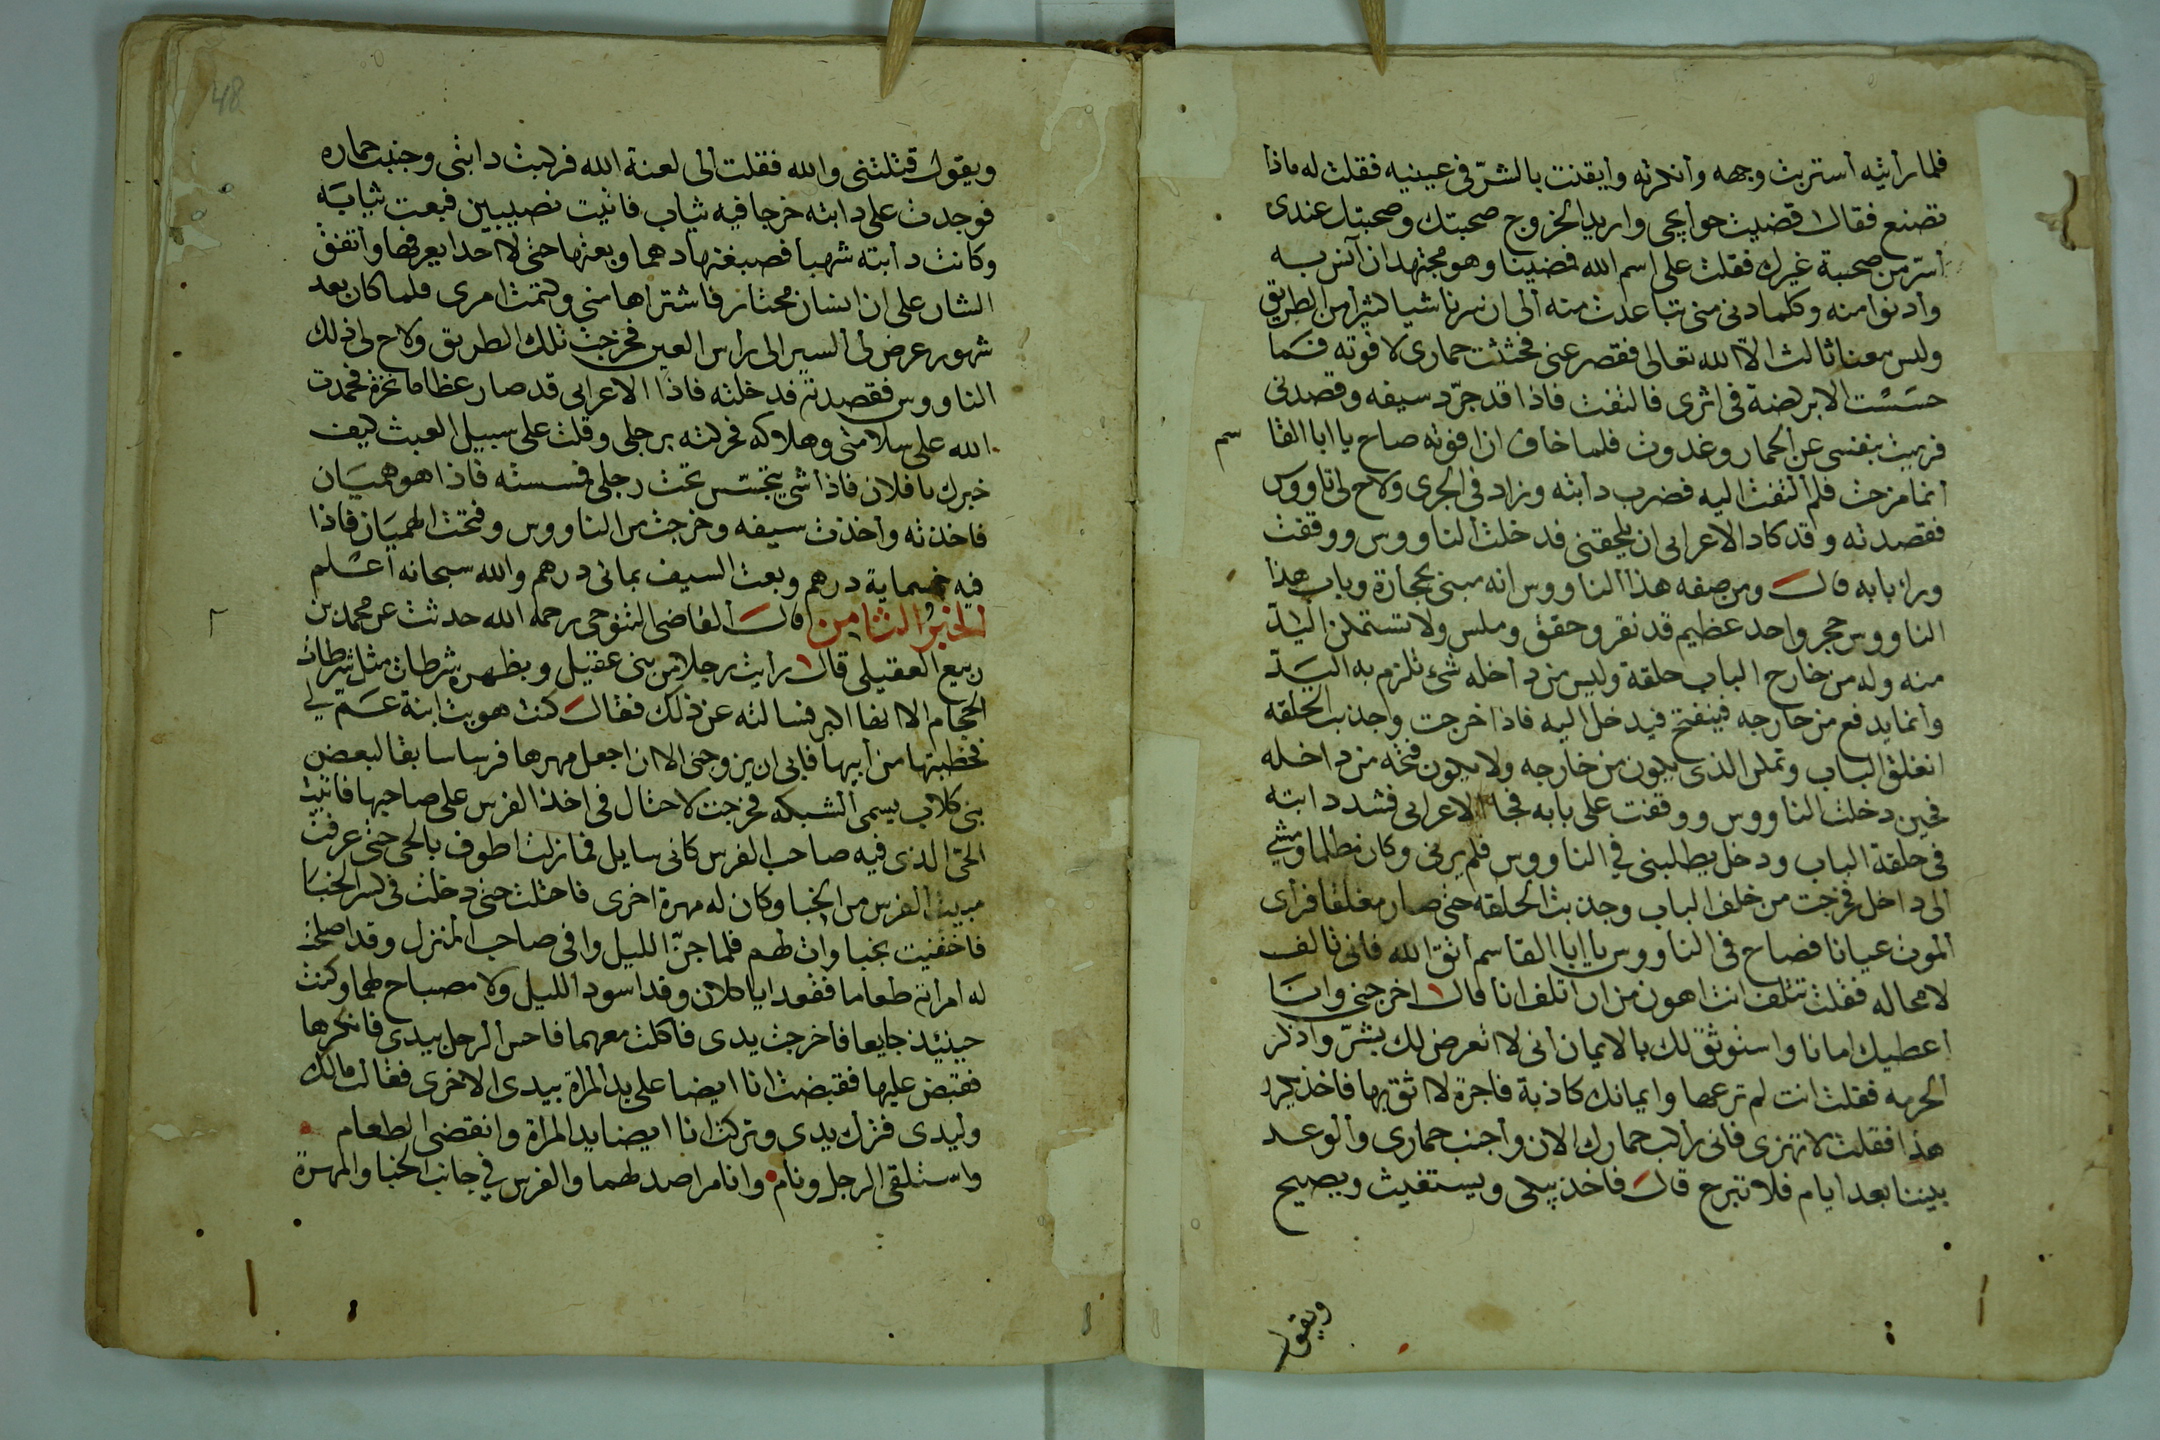 فلما رأيته أستربت وجهه وأنكرته وأيقنت بالشرّ في عينيه فقلت له ماذا
تصنع فقال قضيت حوايجي واريد الخروج صحبتك وصحبتك عندي
أسرّ من صحبة غيرك فقلت على اسم الله فمضينا وهو مجتهد ان آنس به
وأدنوا منه وكلما دنى مني تباعدت منه ألى ان سرنا شيا كثيرا من الطريق
وليس معنا ثالث الاّ الله تعالى فقصر عني فحثثت حماري لا فوته فما
حسست الا بركضه في اثري فالتفت فاذا قد جرّد سيفه وقصدني
فرميت بنفسي عن الحمار وغدوت فلما خاف ان افوته صاح يا ابا القا
سم
أنما مزحت فلم ألتفت اليه فضرب دأبته وزاد في الجري ولاح لي ناووس
فقصدته وقد كاد الاعرابي ان يلحقني فدخلت ألناووس ووقفت
ورا بابه قال ومن صفه هذا ألناووس انه مبني بحجارة وباب هذا
الناووس حجر واحد عظيم قد نقر وحقق وملس ولا تستمكن اليدّ
منه وله من خارج الباب حلقة وليس من دأخله شئ تلزم به اليدّ
وأنما يدفع من خارجه فينفتح فيدخل اليه فاذا خرجت وجذبت الحلقه
انغلق الباب وتمكن الذي يكون من خارجه ولا يكون فتحه من داخله
فحين دخلت الناووس ووقفت على بابه فجا الاعرابي فشد دابته
في حلقة الباب ودخل يطلبني في الناووس فلم يرني وكان مظلما ومشي
ألى داخل فخرجت من خلف الباب وجذبت الحلقه حتى صار مغلقا فرأى
ألموت عيانا فصاح في الناووس يا ابا القاسم أتقّ الله فاني تالف
لا محاله فقلت تتلف انت اهون من ان اتلف انا قال اخرجني وانا
أعطيك امانا واستوثق لك بالايمان أني لا اتعرض لك بشرّ وأذكر
ألحرمه فقلت انت لم ترعها وايمانك كاذبة فاجرة لا اثق بها فاخذ يكرر
هذا فقلت لا تهزي فاني راكب حمارك الان وأجنب حماري وألوعد
بيننا بعد ايام فلا تبرح قال فاخذ يبكي ويستغيث ويصيح
ويقول
ويقول قتلتني والله فقلت ألى لعنة الله فركبت دابتي وجنبت حماره
فوجدت على دابته خرجا فيه ثياب فاتيت نصيبين فبعت ثيابه
وكانت دأبته شهبا فصبغتها دهما وبعتها حتى لا احدا يعرفها وأتفق
الشار على ان انسان مجتاز فاشتراها مني وكتمت امري فلما كان بعد
شهور عرض لي ألسير الى رأس العين فخرجت تلك الطريق ولاح لي ذلك
الناووس فقصدته فدخلته فاذا الاعرابي قد صار عظاما نخزة فحمدت
الله على سلامتي وهلاكه فحركته برجلي وقلت على سبيل العبث كيف
خبرك يا فلان فاذا شي يتخسس تحت رجلي فمسسته فاذا هو هميان
فاخذته وأخذت سيفه وخرجت من الناووس وفتحت الهميان فاذا
فيه خمسماية درهم وبعت السيف بماني درهم والله سبحانه أعلم
الخبرُ الثامن قال ألقاضي التنوخي رحمه الله حدثت عن محمد بن
ربيع العقيلي قال رأيت رجلا من بني عقيل وبظهره شرطات مثل شرطات
الحجام الا انها اكبر فسالته عن ذلك فقال كنت هويت ابنة عم لي
فخطبتها من أبيها فابى ان يزوجني الا ان اجعل مهرها فرسا سابقا لبعض
بني كلاب يسمى ألشبكه فخرجت لاحتال في اخذ الفرس على صاحبها فاتيت
الحي الذي فيه صاحب الفرس كاني سايل فما زلت اطوف بالحي حتى عرفت
مبيت ألفرس من الخبا وكان له مهرة اخرى فاحتلت حتى دخلت في كسر الخبا
فاختفيت بخبا واث لهم فلما جنّ الليل وافى صاحب المنزل وقد اصلحت
له امرأته طعاما فقعدا ياكلان وقد اسود الليل ولا مصباح لهما وكنت
حينئذ جايعا فاخرجت يدي فاكلت معهما فاحس ألرجل بيدي فانكرها
فقبض عليها فقبضت انا ايضا على يد المراة بيدي الاخرى فقالت مالك
وليدي فترك يدي وتركت انا ايضا يد المراة وانقضى الطعام
واستلقى الرجل ونام وانا مراصد لهما والفرس في جانب الخبا والمهرة